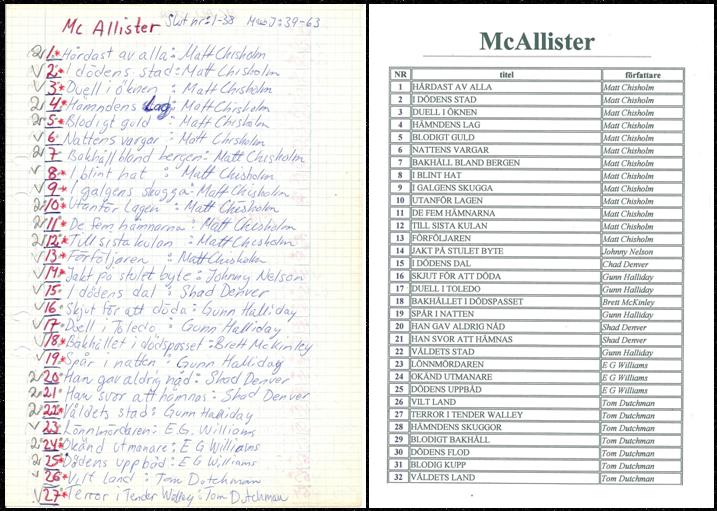 Mc Allister Slut nr:1-38 MassJ:39-63
2v 1* Hårdast av alla: Matt Chisholm
v 2* I dödens stad: Matt Chisholm
v 3* Duell i öknen: Matt Chisholm
2v 4* Hämndens Lag: Matt Chisholm
2v 5* Blodigt guld: Matt Chisholm
v 6 Nattens vargar: Matt Chisholm
2v 7 Bakhåll bland bergen: Matt Chisholm
v 8* I blint hat: Matt Chisholm
v 9* I galgens skugga: Matt Chisholm
2v 10* Utanför lagen: Matt Chisholm
2v 11* De fem hämnarna: Matt Chisholm
2v 12* Till sista kulan: Matt Chisholm
v 13* Förföljaren: Matt Chisholm
v 14* Jakt på stulet byte: Johnny Nelson
v 15 I dödens dal: Shad Denver
v 16 Skjut för att döda: Gunn Halliday
v 17 Duell i Toledo: Gunn Halliday
v 18* Bakhållet i dödspasset: Brett McKinley
v 19 Spår i natten: Gunn Halliday
2v 20* Han gav aldrig nåd: Shad Denver
2v 21* Han svor att hämnas: Shad Denver
2v 22* Våldets stad: Gunn Halliday
v 23 Lönnmördaren: E.G. Williams
2v 24* Okänd utmanare: E G Williams
2v 25* Dödens uppbåd: E G Williams
v 26* Vilt Land: Tom Dutchman
v 27* Terror i Tender Walley: Tom Dutchman
McAllister
NR titel författare
1 HÅRDAST AV ALLA Matt Chisholm
2 I DÖDENS STAD Matt Chisholm
3 DUELL I ÖKNEN Matt Chisholm
4 HÄMNDENS LAG Matt Chisholm
5 BLODIGT GULD Matt Chisholm
6 NATTENS VARGAR Matt Chisholm
7 BAKHÅLL BLAND BERGEN Matt Chisholm
8 I BLINT HAT Matt Chisholm
9 I GALGENS SKUGGA Matt Chisholm
10 UTANFÖR LAGEN Matt Chisholm
11 DE FEM HÄMNARNA Matt Chisholm
12 TILL SISTA KULAN Matt Chisholm
13 FÖRFÖLJAREN Matt Chisholm
14 JAKT PÅ STULET BYTE Johnny Nelson
15 I DÖDENS DAL Chad Denver
16 SKJUT FÖR ATT DÖDA Gunn Halliday
17 DUELL I TOLEDO Gunn Halliday
18 BAKHÅLLET I DÖDSPASSET Brett McKinley
19 SPÅR I NATTEN Gunn Halliday
20 HAN GAV ALDRIG NÅD Shad Denver
21 HAN SVOR ATT HÄMNAS Shad Denver
22 VÅLDETS STAD Gunn Halliday
23 LÖNNMÖRDAREN E G Williams
24 OKÄND UTMANARE E G Williams
25 DÖDENS UPPBÅD E G Williams
26 VILT LAND Tom Dutchman
27 TERROR I TENDER WALLEY Tom Dutchman
28 HÄMNDENS SKUGGOR Tom Dutchman
29 BLODIGT BAKHÅLL Tom Dutchman
30 DÖDENS FLOD Tom Dutchman
31 BLODIG KUPP Tom Dutchman
32 VÅLDETS LAND Tom Dutchman